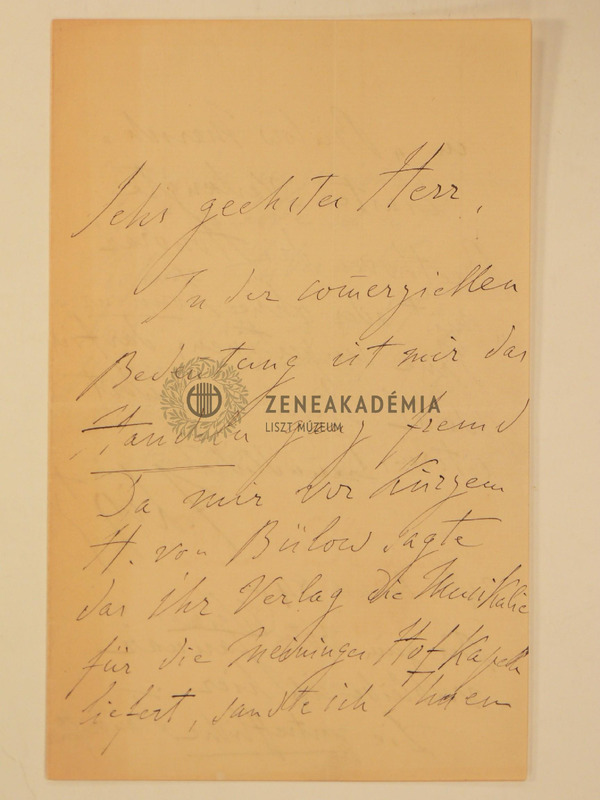 Sehr geehrter Herr,
In der com̄erziellen
Bedeutung ist mir das
Handeln ganz fremd
Da mir vor Kurzem
H. von Bülow sagte
das ihr Verlag die Musikalie
für die Meininger Hof Kapelle
liefert, sandte ich Ihnen
ZENEAKADÉMIA
LISZT MÚZEUM